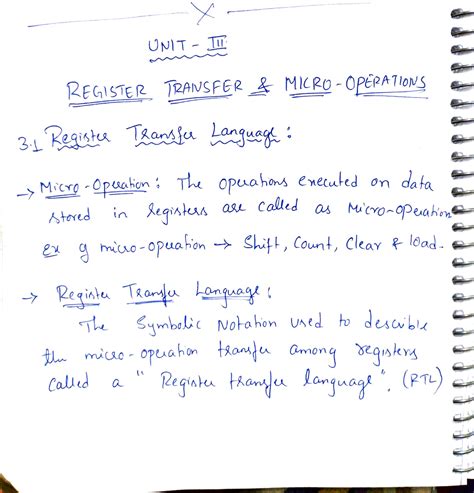 X
UNIT - III
REGISTER TRANSFER & MICRO-OPERATIONS
3.1 Register Transfer Language :
→ Micro-Operation : The operations executed on data
stored in registers are called as Micro-operation
ex of micro-operation → Shift, Count, Clear & load.
→ Register Transfer Language :
The Symbolic Notation used to describe
the micro-operation transfer among registers
called a "Register transfer language". (RTL)